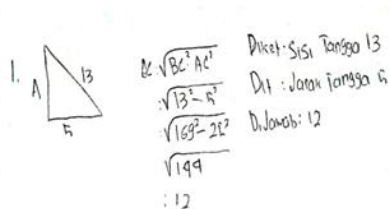 1.
A
13
5
BC : √BC² AC²
: √13² - 5²
: √169² - 25²
√144
: 12
Diket : Sisi Tangga 13
Dit : Jarak Tangga 5
Dijawab : 12